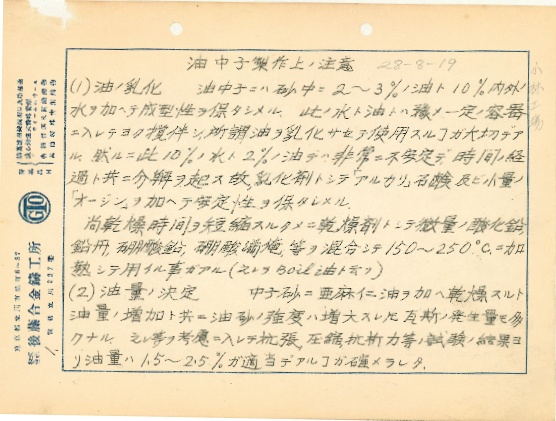 油中子製作上ノ注意 28-8-19
(1) 油ノ乳化 油中子ハ砂中ニ2〜3%ノ油ト10%内外ノ
水ヲ加ヘテ成型性ヲ保タシメル. 此ノ水ト油トハ豫メ一定ノ容器
ニ入レテヨク攪伴シ, 所謂油ヲ乳化サセテ使用スルヿガ大切デア
ル. 然ルニ此10%ノ水ト2%ノ油デハ非常ニ不安定デ時間ノ経
過ト共ニ分解ヲ起ス故, 乳化剤トシテアルカリ, 石鹸及ビ小量ノ
「オージン」ヲ加ヘテ安定性ヲ保タシメル.
尚乾燥時間ヲ短縮スルタメニ乾燥剤トシテ微量ノ酸化鉛,
硼酸鉛, 硼酸満俺, 等ヲ混合シテ150〜250℃ニ加
熱シテ用イル事ガアル (之レヲBoil油ト云フ)
(2) 油量ノ決定 中子砂ニ亜麻仁油ヲ加ヘ乾燥スルト
油量ノ増加ト共ニ油砂ノ強度ハ増大スレ圧瓦斯ノ発生量モ多
クナル. 之レ等ヲ考慮ニ入レテ抗張, 圧縮, 抗折力等ノ試験ノ結果ヨ
リ油量ハ1.5〜2.5%ガ適当デアルヿガ確メラレタ.
GTO
後藤合金鑄工所